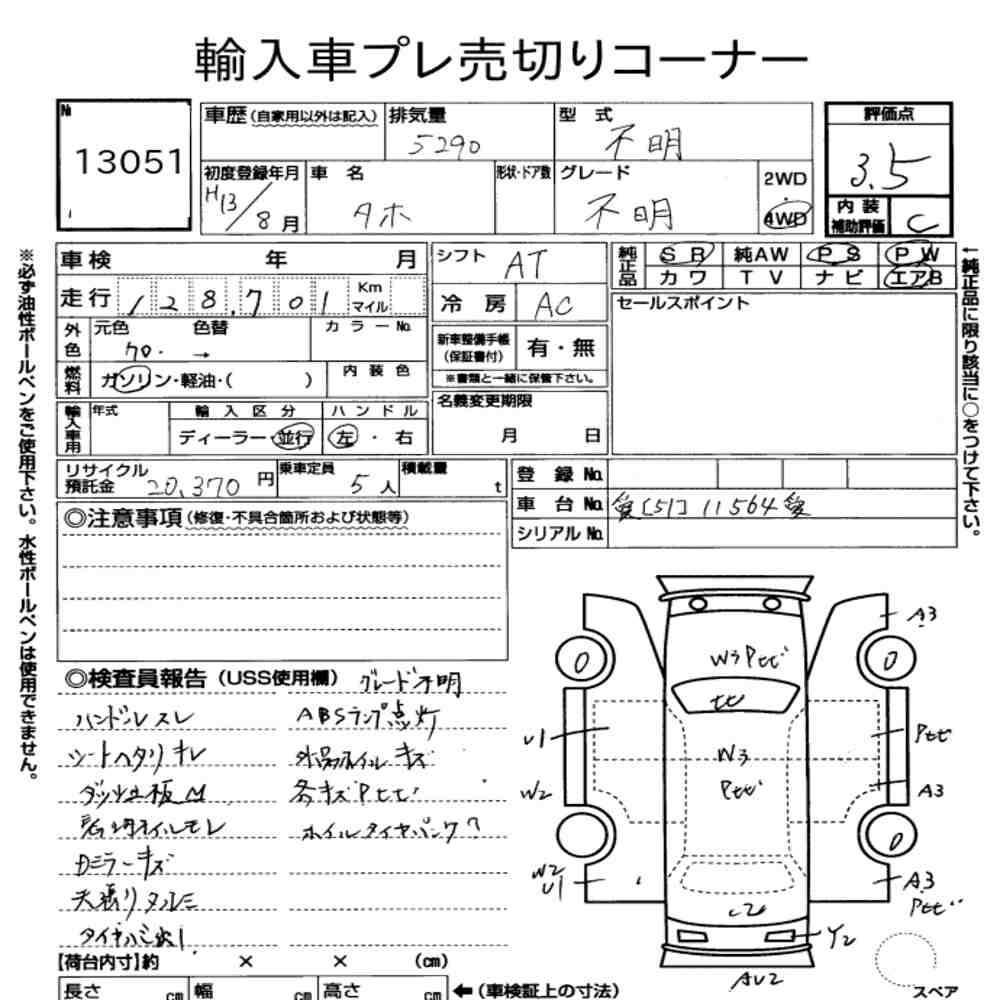 輸入車プレ売切りコーナー
№ 13051
車歴(自家用以外は記入) 排気量 5290 型式 不明 評価点 3.5
初度登録年月 H13/8月 車名 タホ 形状・ドア数 グレード 不明 2WD 4WD
内装補助評価 C
車検 年 月 シフト AT 純正品 SR 純AW PS PW
カワ TV ナビ エアB
走行 128,701 Km マイル 冷房 AC セールスポイント
外色 元色 色替 カラーNo. 新車整備手帳(保証書付) 有・無
クロ・→ ※書類と一緒に保管下さい。
燃料 ガソリン・軽油・( ) 内装色 名義変更期限
輸入車用 年式 輸入区分 ハンドル 月 日
ディーラー・並行 左・右
リサイクル預託金 20,370円 乗車定員 5人 積載量 t 登録No.
車台No. [51]11564
シリアルNo.
◎注意事項(修復・不具合箇所および状態等)
◎検査員報告(USS使用欄) グレード不明
ハンドルスレ ABSランプ点灯
シートヘタリキレ
ダッシュ板
ホイルタイヤパンク?
Dミラーキズ
天張りタルミ
【荷台内寸】約 × × (cm)
長さ cm 幅 cm 高さ cm ←(車検証上の寸法)
※必ず油性ボールペンをご使用下さい。水性ボールペンは使用できません。
←純正品に限り該当に○をつけて下さい。
A3
0 0
W3
U1
W3
W2 A3
0
W2
U1 A3
Y2
AU2
スペア